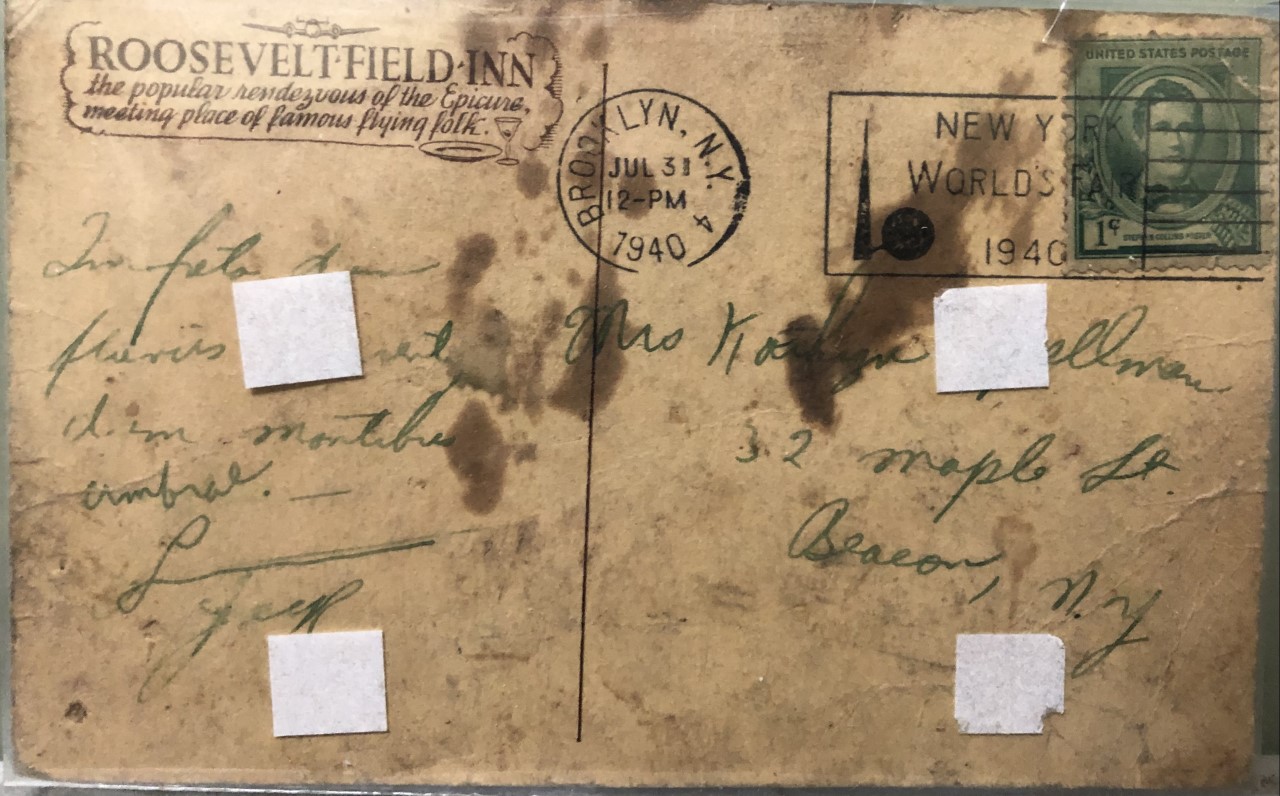 ROOSEVELT·FIELD·INN
the popular rendezvous of the Epicure,
meeting place of famous flying folk.
BROOKLYN, N.Y. 4
JUL 31
12-PM
1940
NEW YORK
WORLD'S FAIR
1940
UNITED STATES POSTAGE
1¢
STEPHEN COLLINS FOSTER
In freta dum
fluvii
dum montibus
umbrae. —
L
Jeff
Mrs
32 Maple St.
Beacon, N.Y